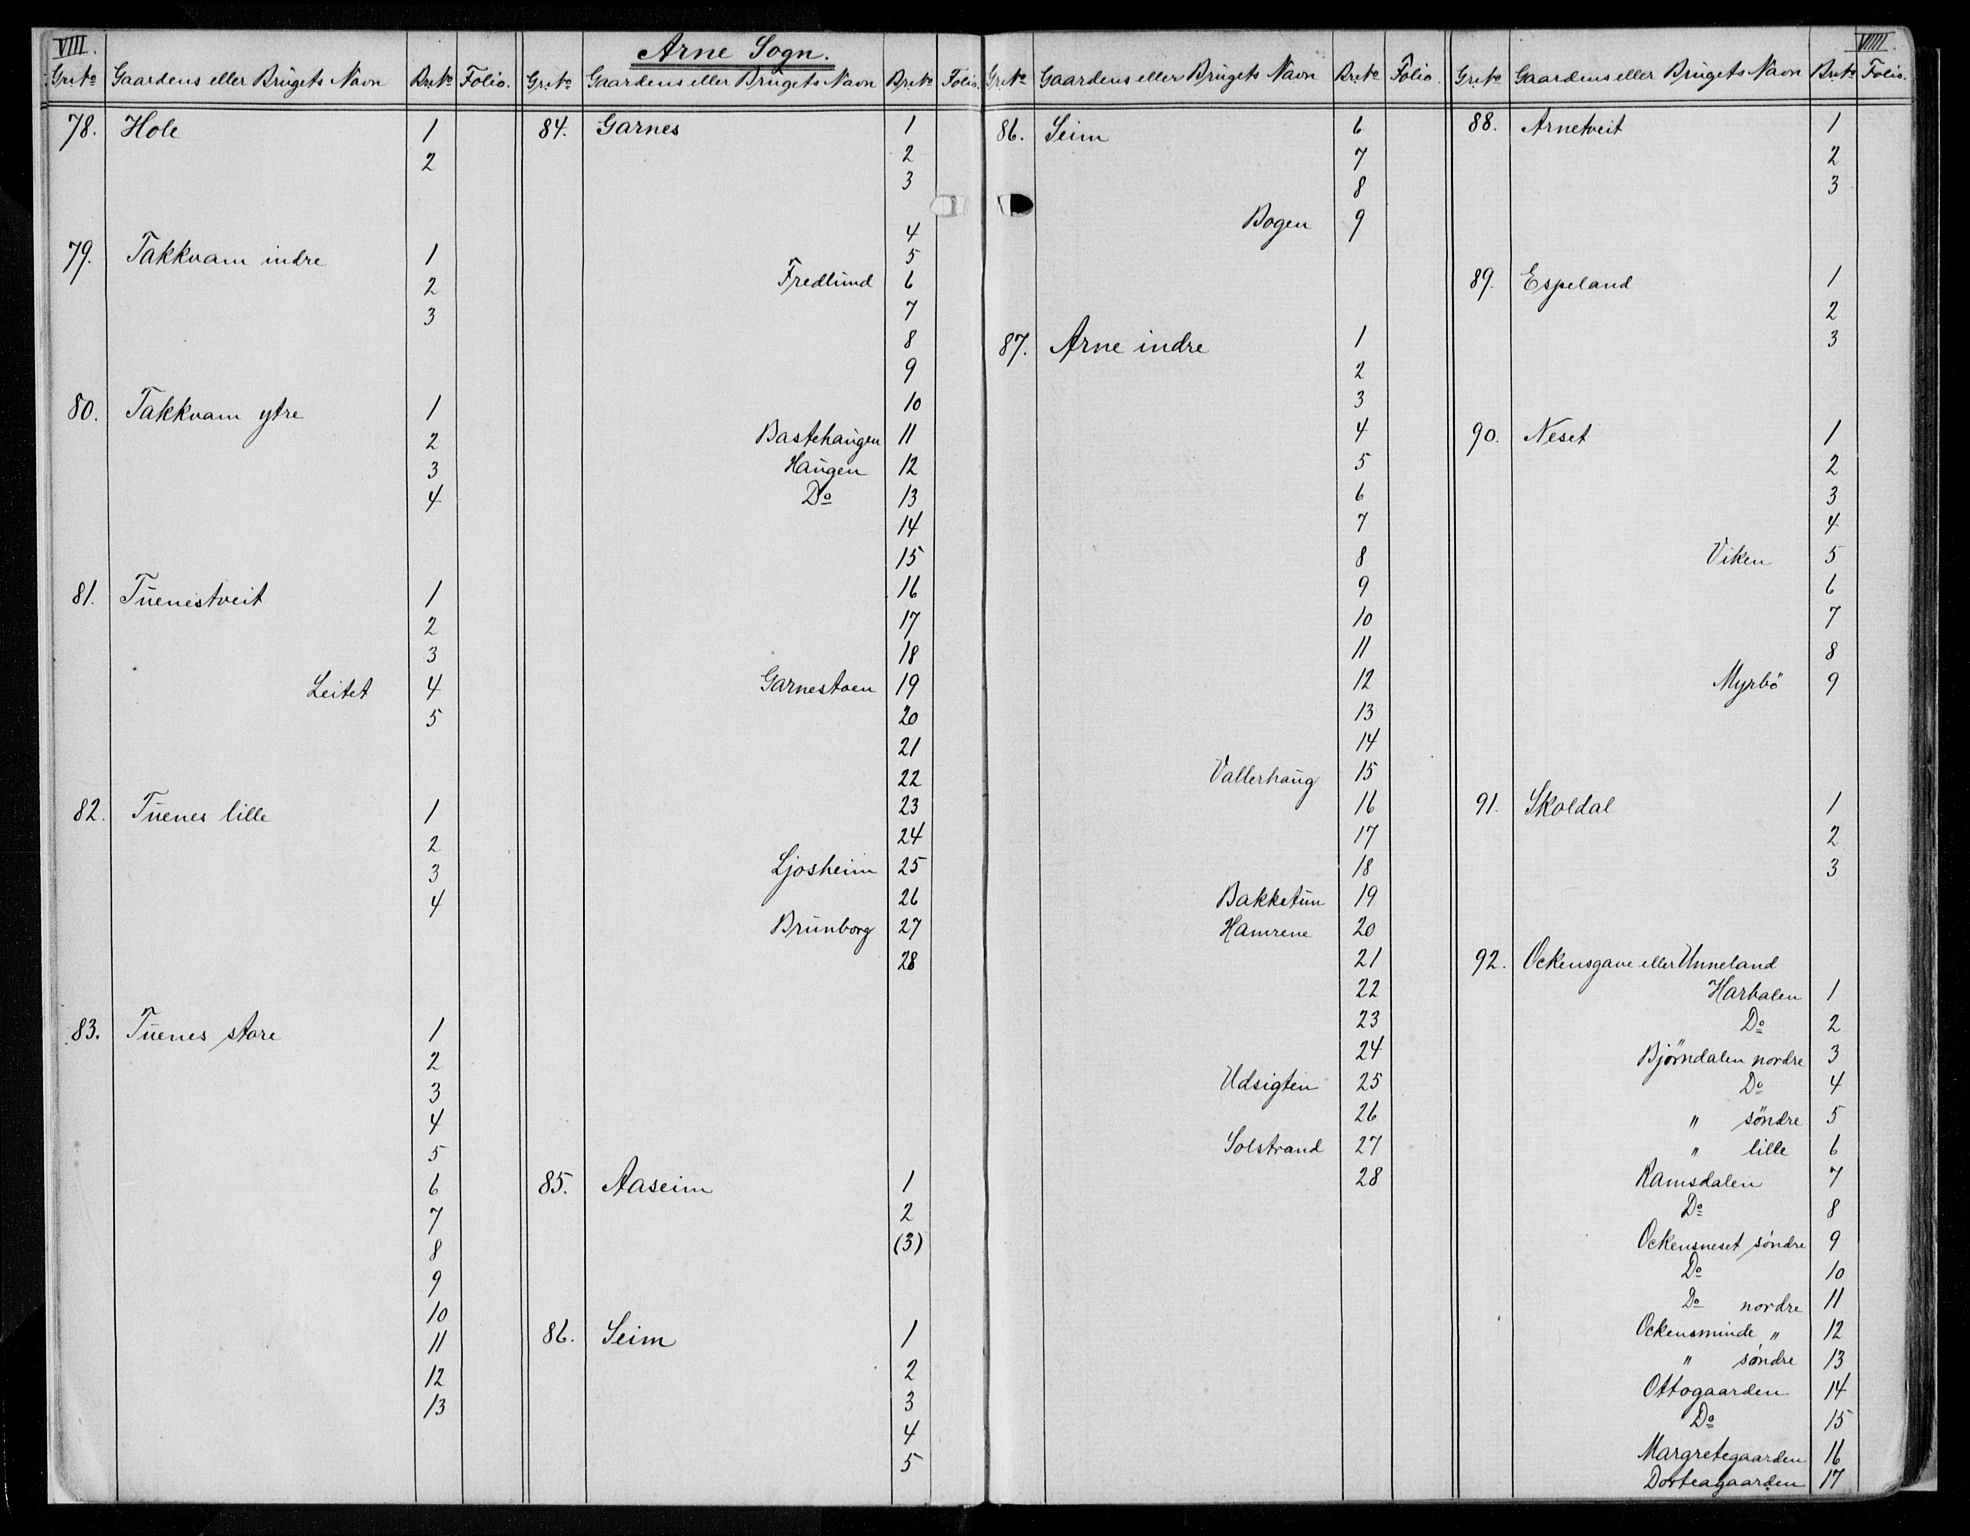 VIII.
Arne Sogn.
Gr.No Gaardens eller Brugets Navn Br.No Folio.
78. Hole 1
2
79. Takkvam indre 1
2
3
80. Takkvam ytre 1
2
3
4
81. Tuenestveit 1
2
3
Leitet 4
5
82. Tuenes lille 1
2
3
4
83. Tuenes store 1
2
3
4
5
6
7
8
9
10
11
12
13
Gr.No Gaardens eller Brugets Navn Br.No Folio.
84. Garnes 1
2
3
4
5
Fredlund 6
7
8
9
10
Bastehaugen 11
Haugen 12
Do 13
14
15
16
17
18
Garnestoen 19
20
21
22
23
24
Ljosheim 25
26
Brunborg 27
28
85. Aaseim 1
2
(3)
86. Seim 1
2
3
4
5
VIIII.
Gr.No Gaardens eller Brugets Navn Br.No Folio.
86. Seim 6
7
8
Bogen 9
87. Arne indre 1
2
3
4
5
6
7
8
9
10
11
12
13
14
Vallerhaug 15
16
17
18
Bakketun 19
Hamrene 20
21
22
23
24
Udsigten 25
26
Solstrand 27
28
Gr.No Gaardens eller Brugets Navn Br.No Folio.
88. Arnetveit 1
2
3
89. Espeland 1
2
3
90. Neset 1
2
3
4
Viken 5
6
7
8
Myrbö 9
91. Skoldal 1
2
3
92. Ockensgave eller Unneland
Harbalen 1
Do 2
Bjørndalen nordre 3
Do 4
" söndre 5
" lille 6
Ramsdalen 7
Do 8
Ockensneset söndre 9
Do 10
Do nordre 11
Ockensminde " 12
" söndre 13
Ottogaarden 14
Do 15
Margretegaarden 16
Dorteagaarden 17